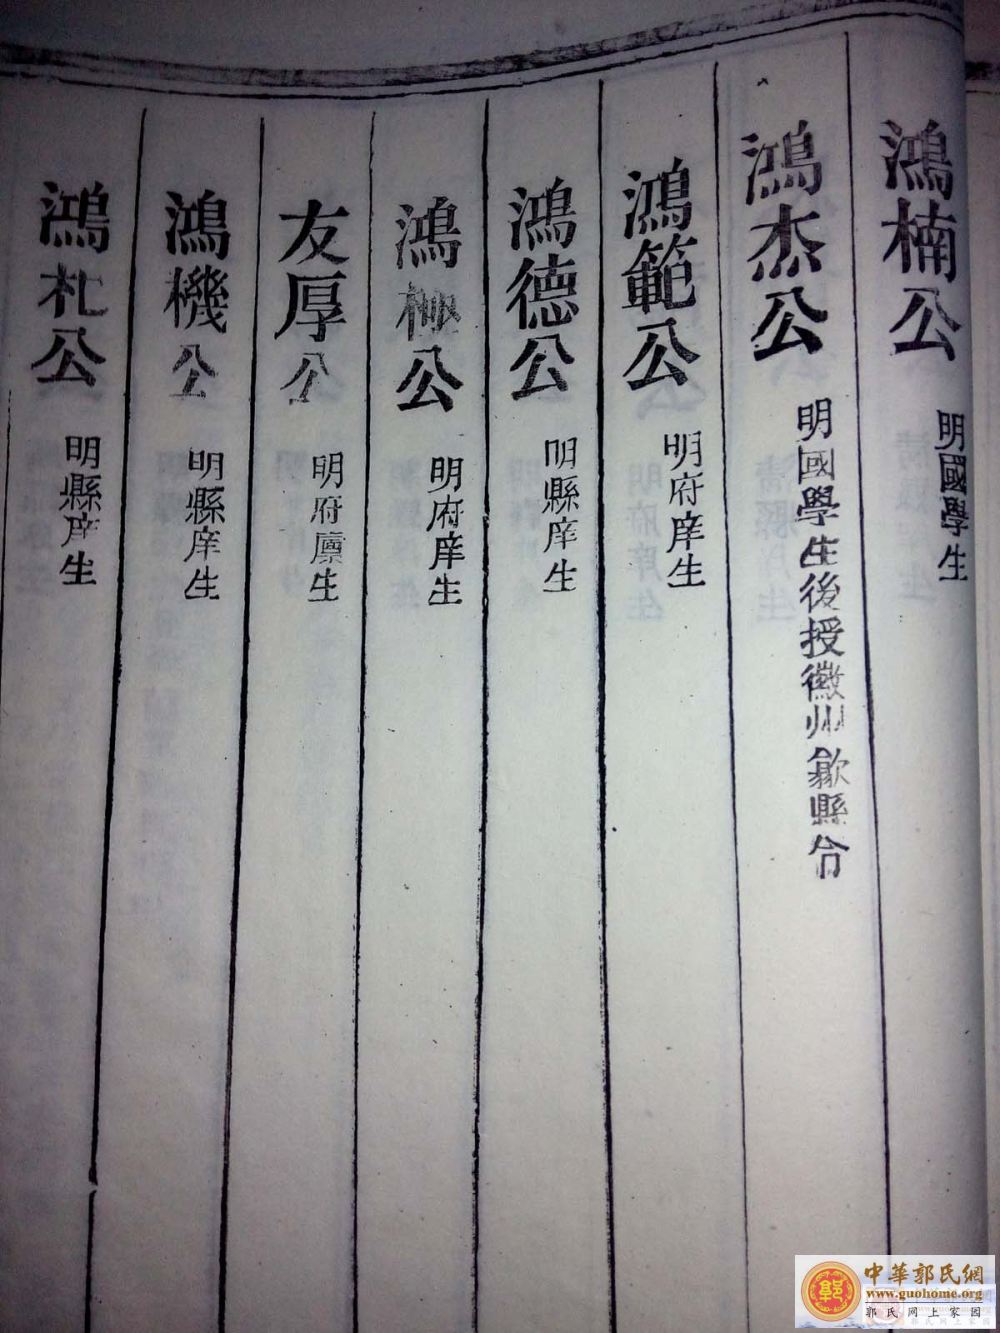 鴻楠公 明國學生
鴻杰公 明國學生後授徽州歙縣令
鴻範公 明府庠生
鴻德公 明縣庠生
鴻極公 明府庠生
友厚公 明府廩生
鴻機公 明縣庠生
鴻札公 明縣庠生
中華郭氏網
www.guohome.org
郭氏网上家园